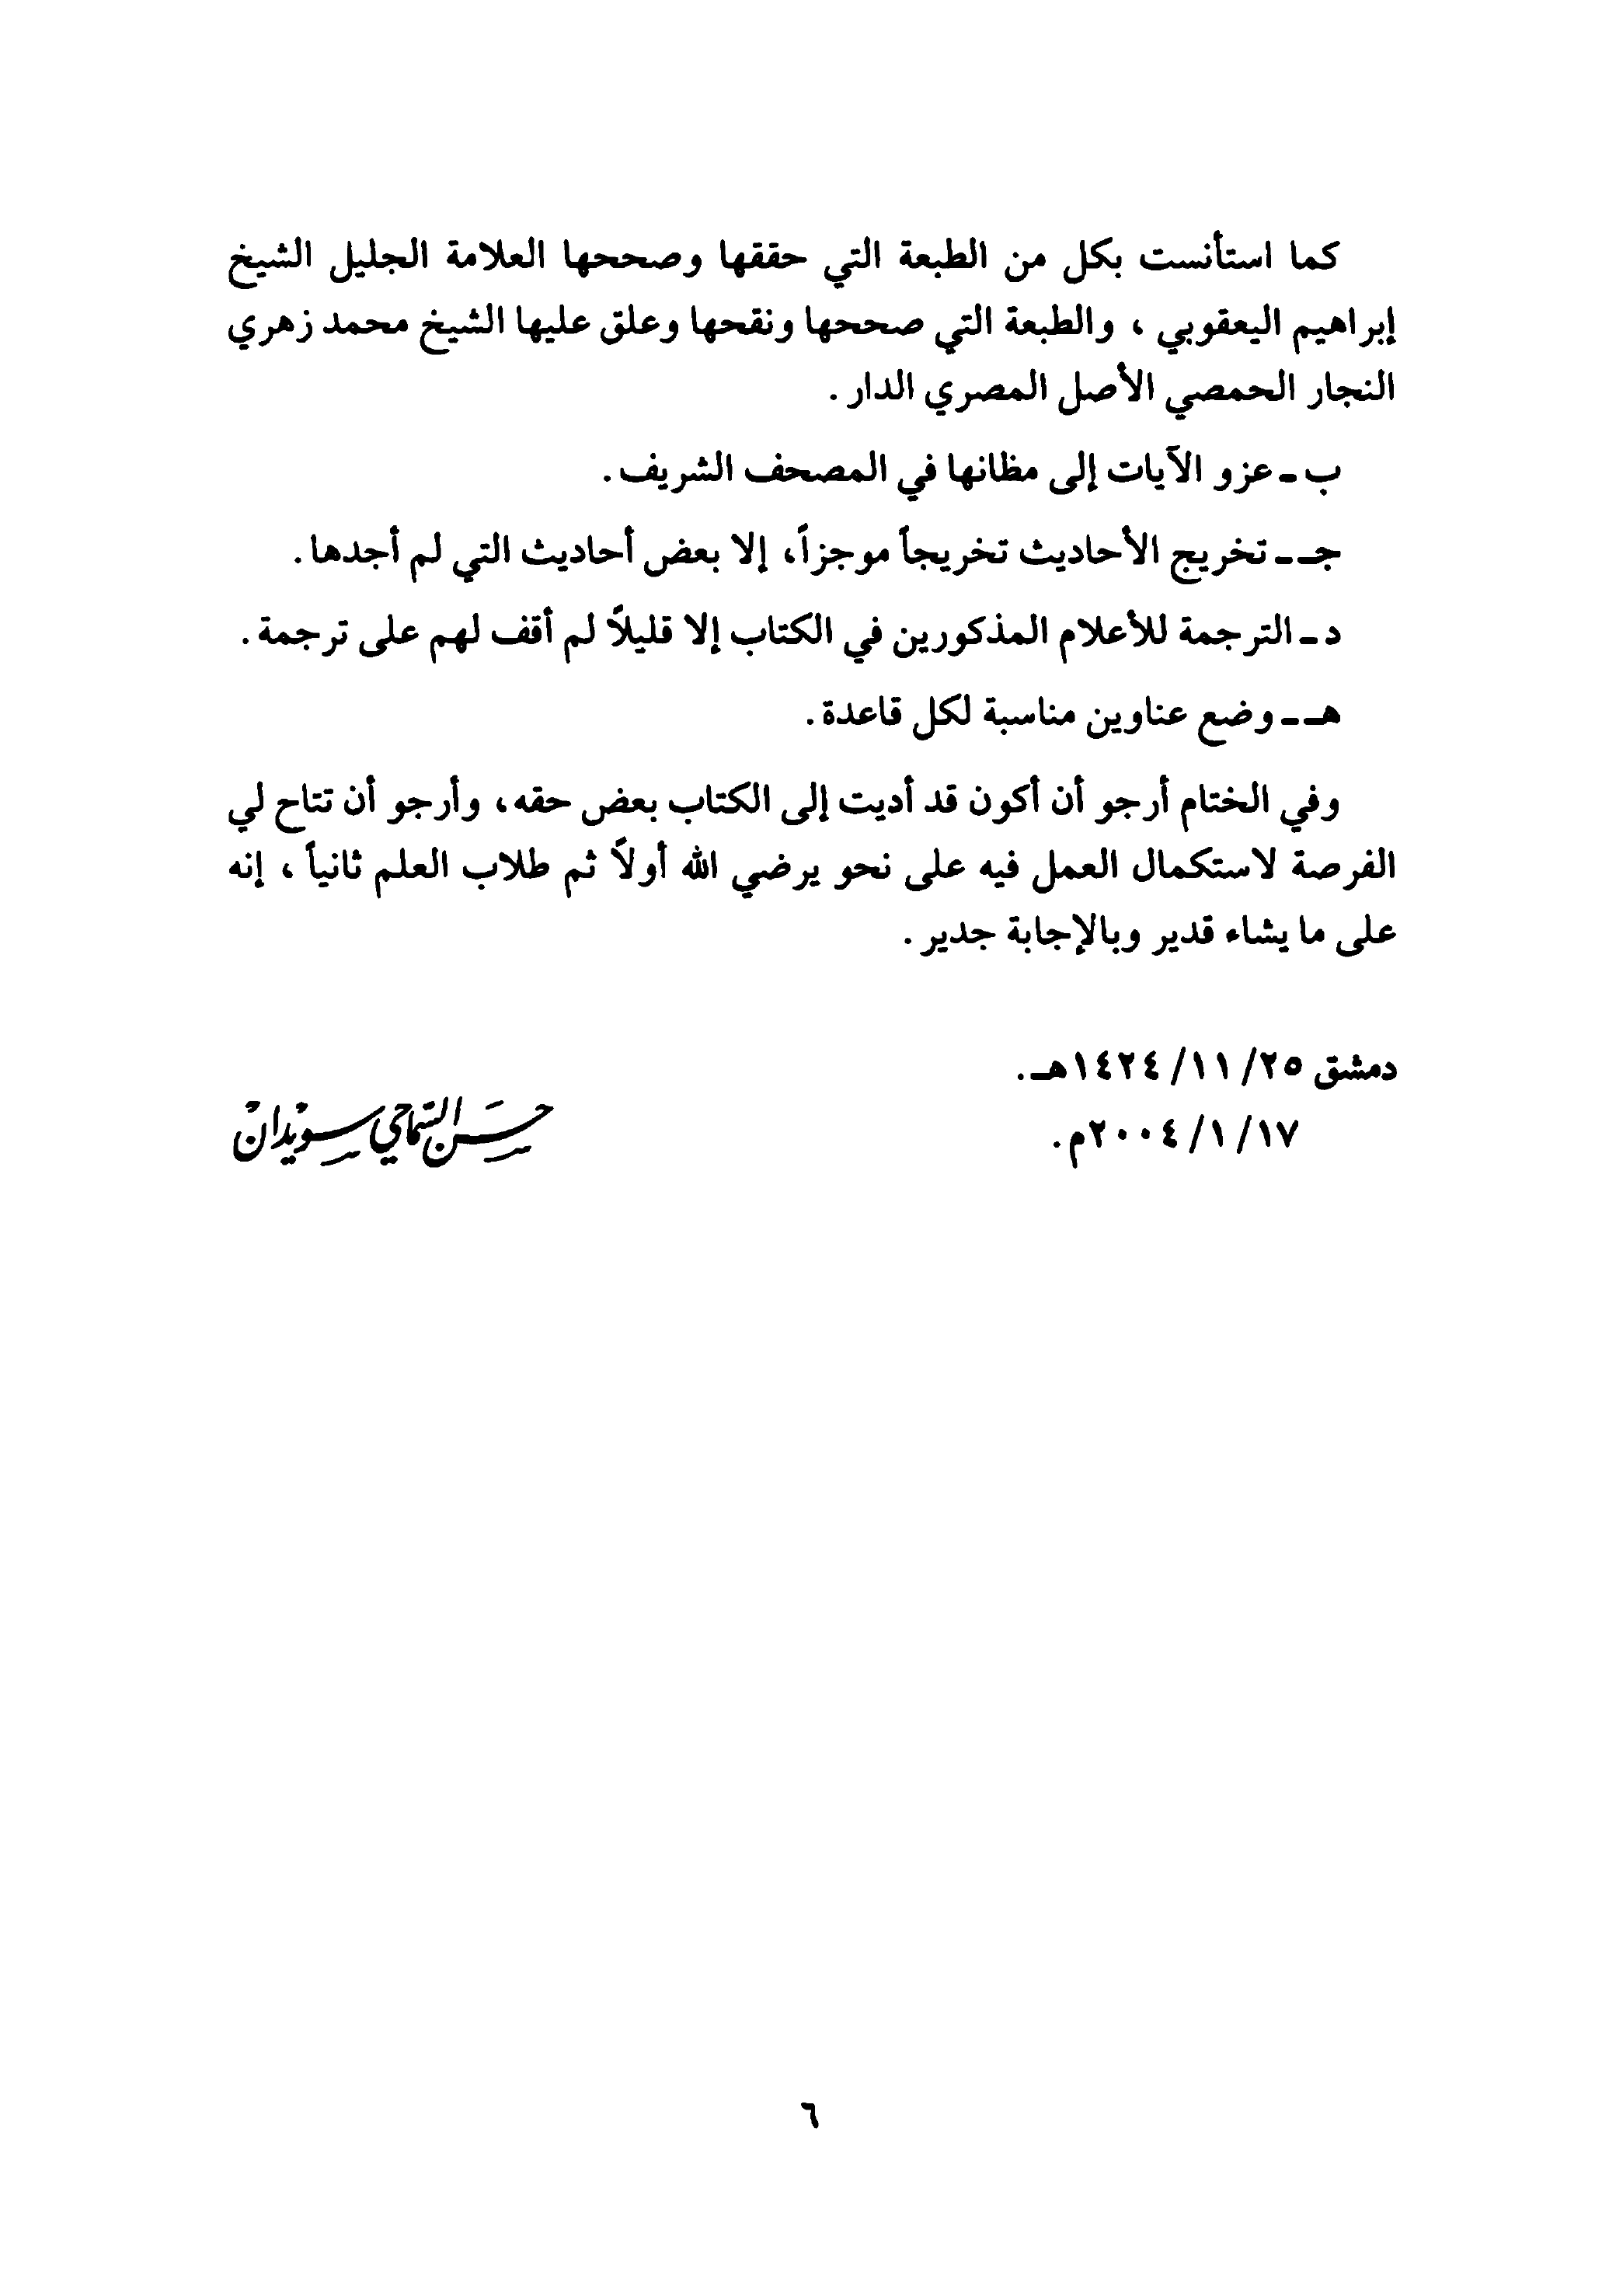 كما استأنست بكل من الطبعة التي حققها وصححها العلامة الجليل الشيخ
إبراهيم اليعقوبي ، والطبعة التي صححها ونقحها وعلق عليها الشيخ محمد زهري
النجار الحمصي الأصل المصري الدار .
ب ـ عزو الآيات إلى مظانها في المصحف الشريف .
جـ ـ تخريج الأحاديث تخريجاً موجزاً، إلا بعض أحاديث التي لم أجدها .
د ـ الترجمة للأعلام المذكورين في الكتاب إلا قليلاً لم أقف لهم على ترجمة .
هـ ـ وضع عناوين مناسبة لكل قاعدة .
وفي الختام أرجو أن أكون قد أديت إلى الكتاب بعض حقه، وأرجو أن تتاح لي
الفرصة لاستكمال العمل فيه على نحو يرضي الله أولاً ثم طلاب العلم ثانياً ، إنه
على ما يشاء قدير وبالإجابة جدير .
دمشق ٢٥/ ١١/ ١٤٢٤هـ .
١٧/ ١/ ٢٠٠٤م .
حَسَن السَّمَاحي سوَيْدان
٦